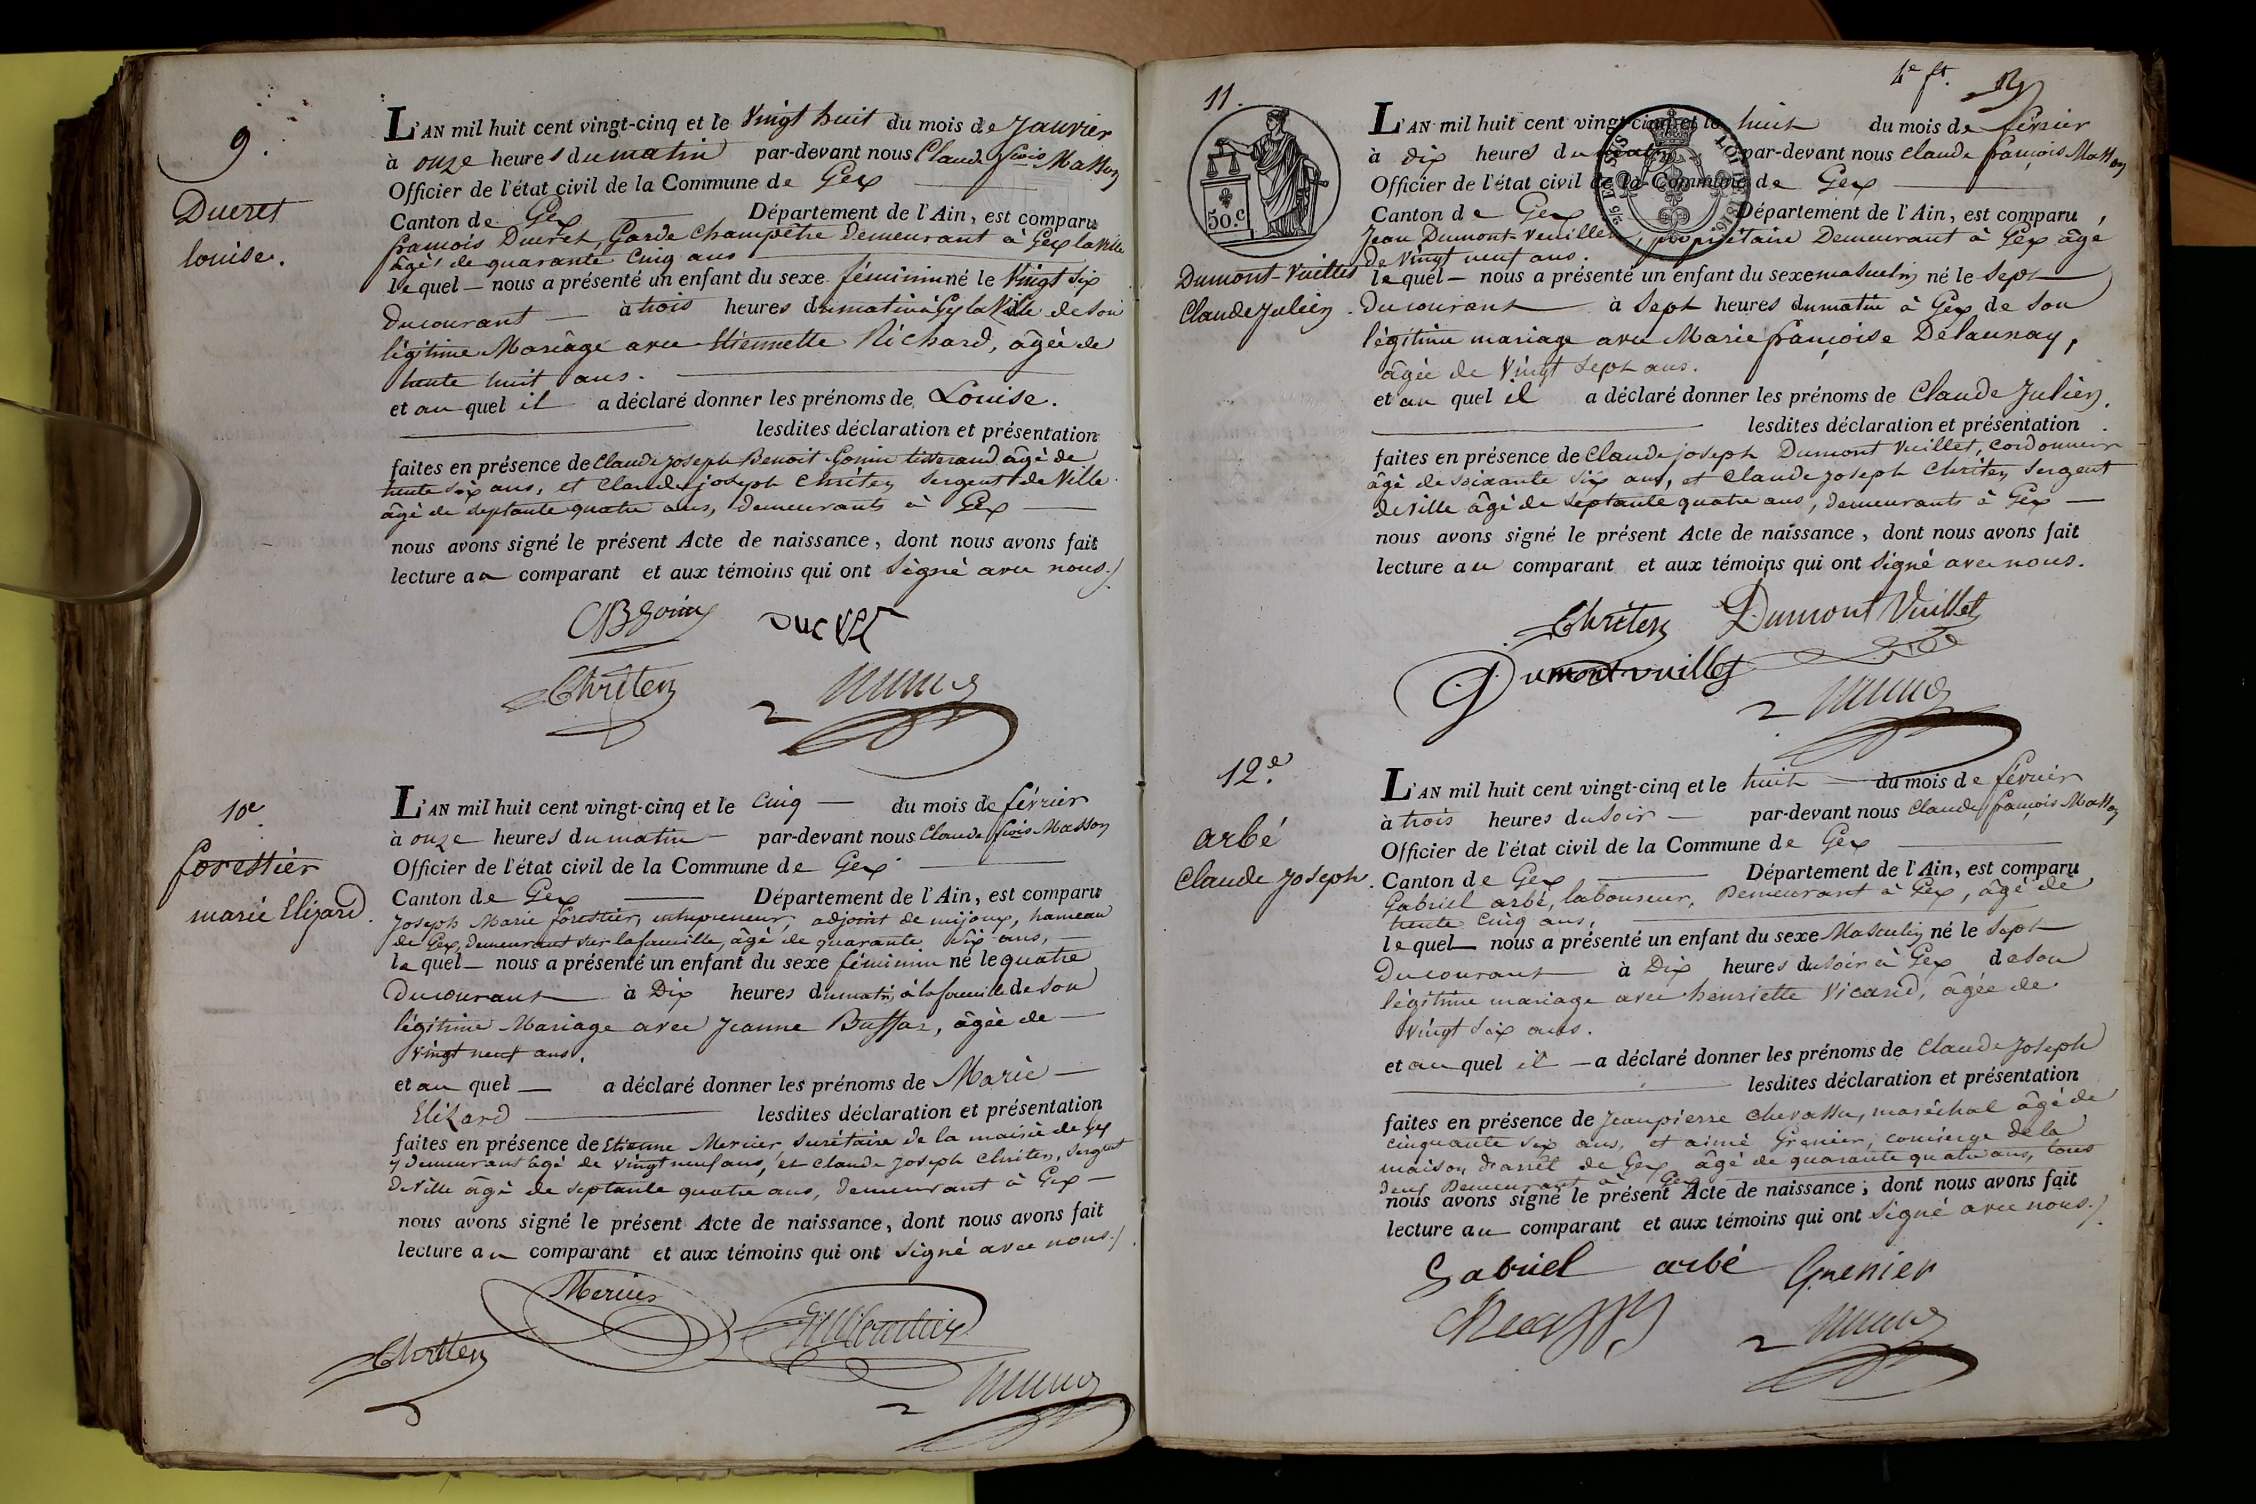 9.
Ducret
louise.
L'AN mil huit cent vingt-cinq et le Vingt huit du mois de Janvier
à onze heures du matin par-devant nous Claude fcois Masson
Officier de l'état civil de la Commune de Gex
Canton de Gex Département de l'Ain, est comparu
francois Ducret, Garde Champêtre demeurant à Gex la Ville
âgé de quarante cinq ans
lequel nous a présenté un enfant du sexe féminin né le Vingt six
du courant à trois heures du matin à Gex la Ville de son
légitime Mariage avec Etiennette Richard, âgée de
trente huit ans.
et au quel il a déclaré donner les prénoms de Louise.
lesdites déclaration et présentation
faites en présence de Claude Joseph Benoit Gonin tisserand âgé de
trente six ans, et Claude joseph Chrêten Sergent de Ville
âgé de septante quatre ans, demeurants à Gex
nous avons signé le présent Acte de naissance, dont nous avons fait
lecture au comparant et aux témoins qui ont Signé avec nous./
CB Gonin Ducret
Chrêten
10e
forestier
marie Elizard.
L'AN mil huit cent vingt-cinq et le Cinq du mois de février
à onze heures du matin par-devant nous Claude fcois Masson
Officier de l'état civil de la Commune de Gex
Canton de Gex Département de l'Ain, est comparu
Joseph Marie forestier, entrepreneur, adjoint de mijoux, hameau
de Gex, demeurant sur la faucille, âgé de quarante six ans,
lequel nous a présenté un enfant du sexe féminin né le quatre
du courant à Dix heures du matin à la faucille de son
légitime Mariage avec Jeanne Buffaz, âgée de
vingt neuf ans.
et au quel a déclaré donner les prénoms de Marie
Elizard lesdites déclaration et présentation
faites en présence de Etienne Mercier Secrétaire de la mairie de Gex
y demeurant âgé de vingt neuf ans, et Claude Joseph Chrêten, Sergent
de Ville âgé de septante quatre ans, demeurant à Gex
nous avons signé le présent Acte de naissance, dont nous avons fait
lecture au comparant et aux témoins qui ont Signé avec nous./.
Mercier
Chrêten
4e ft.
11.
50.c
LOI DE 1816
Dumont-Vuillet
Claude Julien.
L'AN mil huit cent vingt-cinq et le huit du mois de février
à dix heures du matin par-devant nous Claude françois Masson
Officier de l'état civil de la Commune de Gex
Canton de Gex Département de l'Ain, est comparu,
Jean Dumont-Vuillet, propriétaire Demeurant à Gex âgé
de Vingt neuf ans.
lequel nous a présenté un enfant du sexe masculin né le Sept
Du courant à Sept heures du matin à Gex de son
légitime mariage avec Marie françoise Delaunay,
âgée de Vingt Sept ans.
et au quel il a déclaré donner les prénoms de Claude Julien.
lesdites déclaration et présentation
faites en présence de Claude joseph Dumont Vuillet, cordonnier
âgé de soixante six ans, et Claude Joseph Chrêten, Sergent
de Ville âgé de septante quatre ans, demeurants à Gex
nous avons signé le présent Acte de naissance, dont nous avons fait
lecture au comparant et aux témoins qui ont Signé avec nous.
Chrêten Dumont Vuillet
Dumont vuillet
12e.
arbé
Claude Joseph.
L'AN mil huit cent vingt-cinq et le huit du mois de février
à trois heures du Soir par-devant nous Claude françois Masson
Officier de l'état civil de la Commune de Gex
Canton de Gex Département de l'Ain, est comparu
Gabriel arbé, laboureur, Demeurant à Gex, âgé de
trente Cinq ans,
lequel nous a présenté un enfant du sexe Masculin né le Sept
Du courant à Dix heures du Soir à Gex de son
légitime mariage avec henriette Vicard, âgée de
Vingt Six ans.
et au quel il a déclaré donner les prénoms de Claude Joseph
lesdites déclaration et présentation
faites en présence de Jean pierre Chevassu, maréchal âgé de
Cinquante six ans, et aimé Grenier, concierge de la
maison d'arrêt de Gex âgé de quarante quatre ans, tous
deux Demeurant à Gex
nous avons signé le présent Acte de naissance; dont nous avons fait
lecture au comparant et aux témoins qui ont Signé avec nous./.
Gabriel arbé Grenier